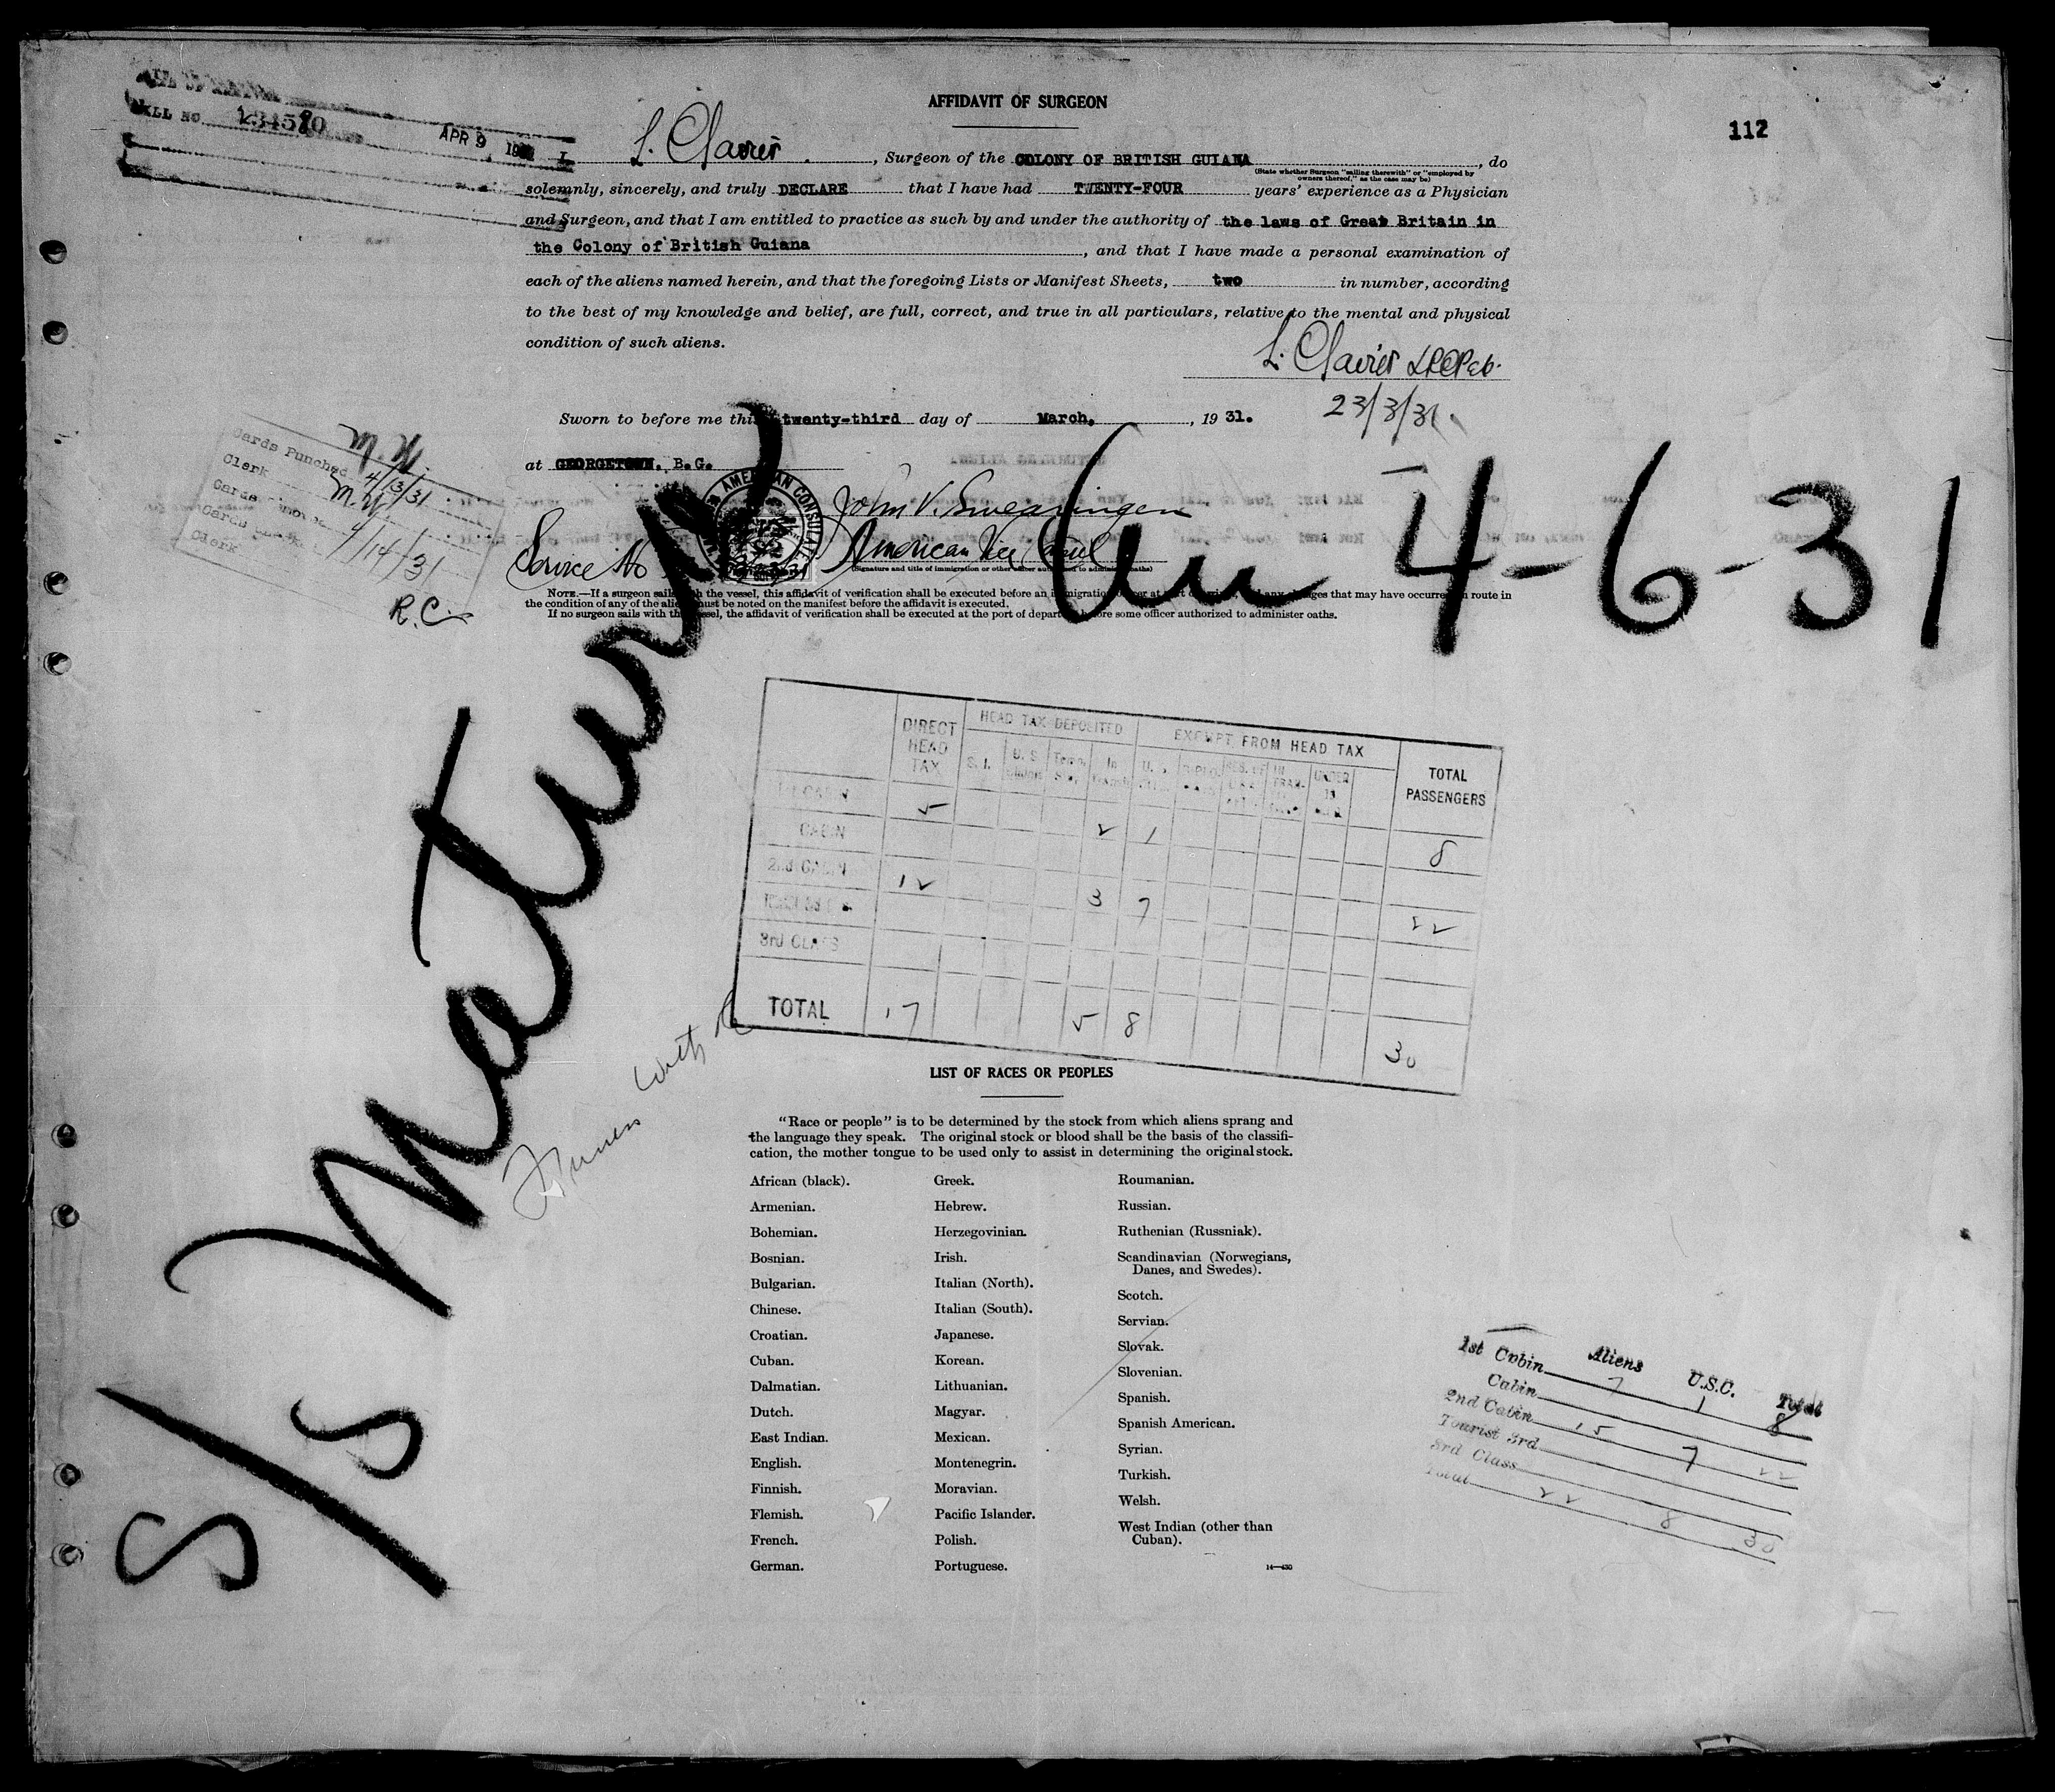 AFFIDAVIT OF SURGEON
112
APR 9
I, L. Clavier, Surgeon of the COLONY OF BRITISH GUIANA, do
(State whether Surgeon "sailing therewith" or "employed by owners thereof," as the case may be)
solemnly, sincerely, and truly DECLARE that I have had TWENTY-FOUR years' experience as a Physician
and Surgeon, and that I am entitled to practice as such by and under the authority of the laws of Great Britain in
the Colony of British Guiana, and that I have made a personal examination of
each of the aliens named herein, and that the foregoing Lists or Manifest Sheets, two in number, according
to the best of my knowledge and belief, are full, correct, and true in all particulars, relative to the mental and physical
condition of such aliens.
L. Clavier
23/3/31.
Sworn to before me this twenty-third day of March, 1931.
at GEORGETOWN. B.G.
AMERICAN CONSULATE
John V. Swearingen
American Vice Consul
Service No
Cards Punched 4/13/31
Clerk M.W.
4/14/31
Clerk R.C.
NOTE.—If a surgeon sails with the vessel, this affidavit of verification shall be executed before an immigration officer at port of arrival, and any changes that may have occurred en route in
the condition of any of the aliens must be noted on the manifest before the affidavit is executed.
If no surgeon sails with the vessel, the affidavit of verification shall be executed at the port of departure before some officer authorized to administer oaths.
S/S Matura
4-6-31
DIRECT HEAD TAX
HEAD TAX DEPOSITED
EXEMPT FROM HEAD TAX
TOTAL PASSENGERS
1st CABIN 5 2 1 8
CABIN
2nd CABIN 12 3 7 22
3rd CLASS
TOTAL 17 5 8 30
LIST OF RACES OR PEOPLES
"Race or people" is to be determined by the stock from which aliens sprang and
the language they speak. The original stock or blood shall be the basis of the classifi-
cation, the mother tongue to be used only to assist in determining the original stock.
African (black).
Armenian.
Bohemian.
Bosnian.
Bulgarian.
Chinese.
Croatian.
Cuban.
Dalmatian.
Dutch.
East Indian.
English.
Finnish.
Flemish.
French.
German.
Greek.
Hebrew.
Herzegovinian.
Irish.
Italian (North).
Italian (South).
Japanese.
Korean.
Lithuanian.
Magyar.
Mexican.
Montenegrin.
Moravian.
Pacific Islander.
Polish.
Portuguese.
Roumanian.
Russian.
Ruthenian (Russniak).
Scandinavian (Norwegians,
Danes, and Swedes).
Scotch.
Servian.
Slovak.
Slovenian.
Spanish.
Spanish American.
Syrian.
Turkish.
Welsh.
West Indian (other than
Cuban).
14—430
Aliens U.S.C. Total
1st Cabin 7 1 8
Cabin
2nd Cabin 15 7 22
Tourist 3rd
3rd Class
Total 22 8 30